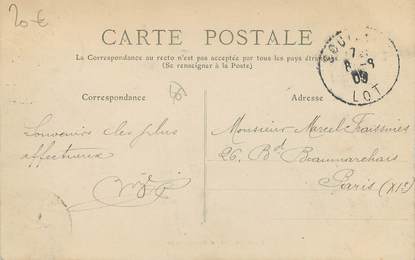 20€
CARTE POSTALE
La Correspondance au recto n'est pas acceptée par tous les pays
(Se renseigner à la Poste)
7
8 - 8
09
LOT
Correspondance
Adresse
Souvenirs les plus
affectueux
Monsieur Marcel Fraissines
26. Bd Beaumarchais
Paris (XIe)